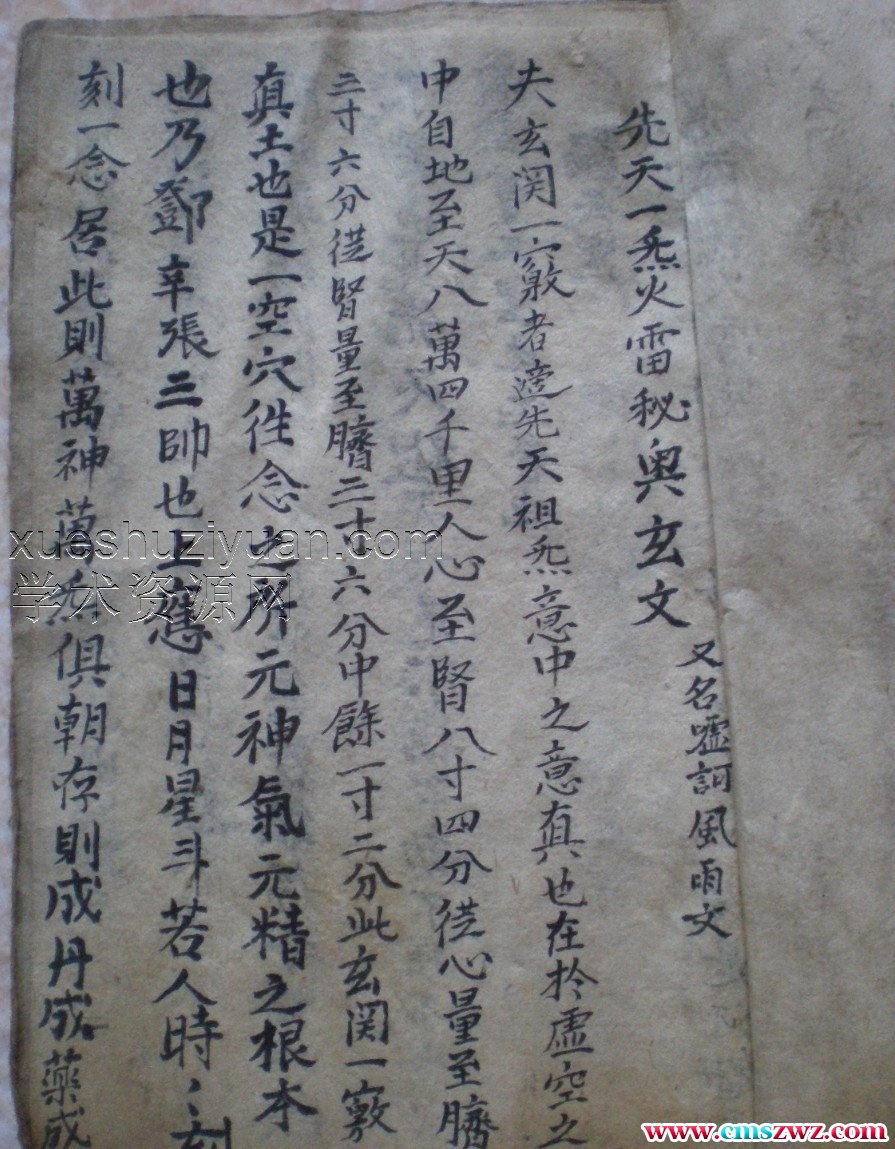 先天一炁火雷秘奥玄文
又名嘘訶風雨文
夫玄関一竅者遶先天祖炁意中之意真也在於虛空之
中自地至天八萬四千里人心至腎八寸四分從心量至臍
三寸六分從腎量至臍三寸六分中餘一寸二分此玄関一竅
真土也是一空穴徃念之所元神氣元精之根本
也乃鄧辛張三帥也上應日月星斗若人時〻刻
刻一念居此則萬神萬炁俱朝存則成丹成藥成
xueshuziyuan.com
学术资源网
www.cmszwz.com